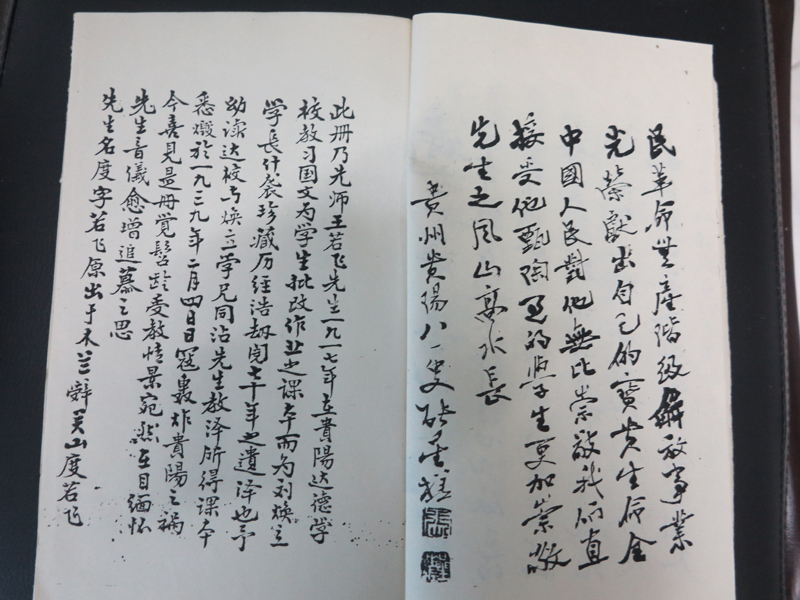 民革命無產階級解放事業
光榮獻出自己的寶貴生命全
中國人民對他無比崇敬我們直
接受他甄陶過的學生更加崇敬
先生之風山高水長
貴州貴陽八一叟
此册乃先师王若飞先生一九一七年在貴陽达德学
校教习国文为学生批改作业之課本而为刘焕立
学長什袭珍藏历经浩劫閱七十年之遗泽也予
幼读达校与焕立学兄同沾先生教泽所得課本
悉燬於一九三九年二月四日日寇轰炸貴陽之禍
今喜见是册觉髫龄受教情景宛然在目缅怀
先生音儀愈增追慕之思
先生名度字若飞原出于木兰辞关山度若飞